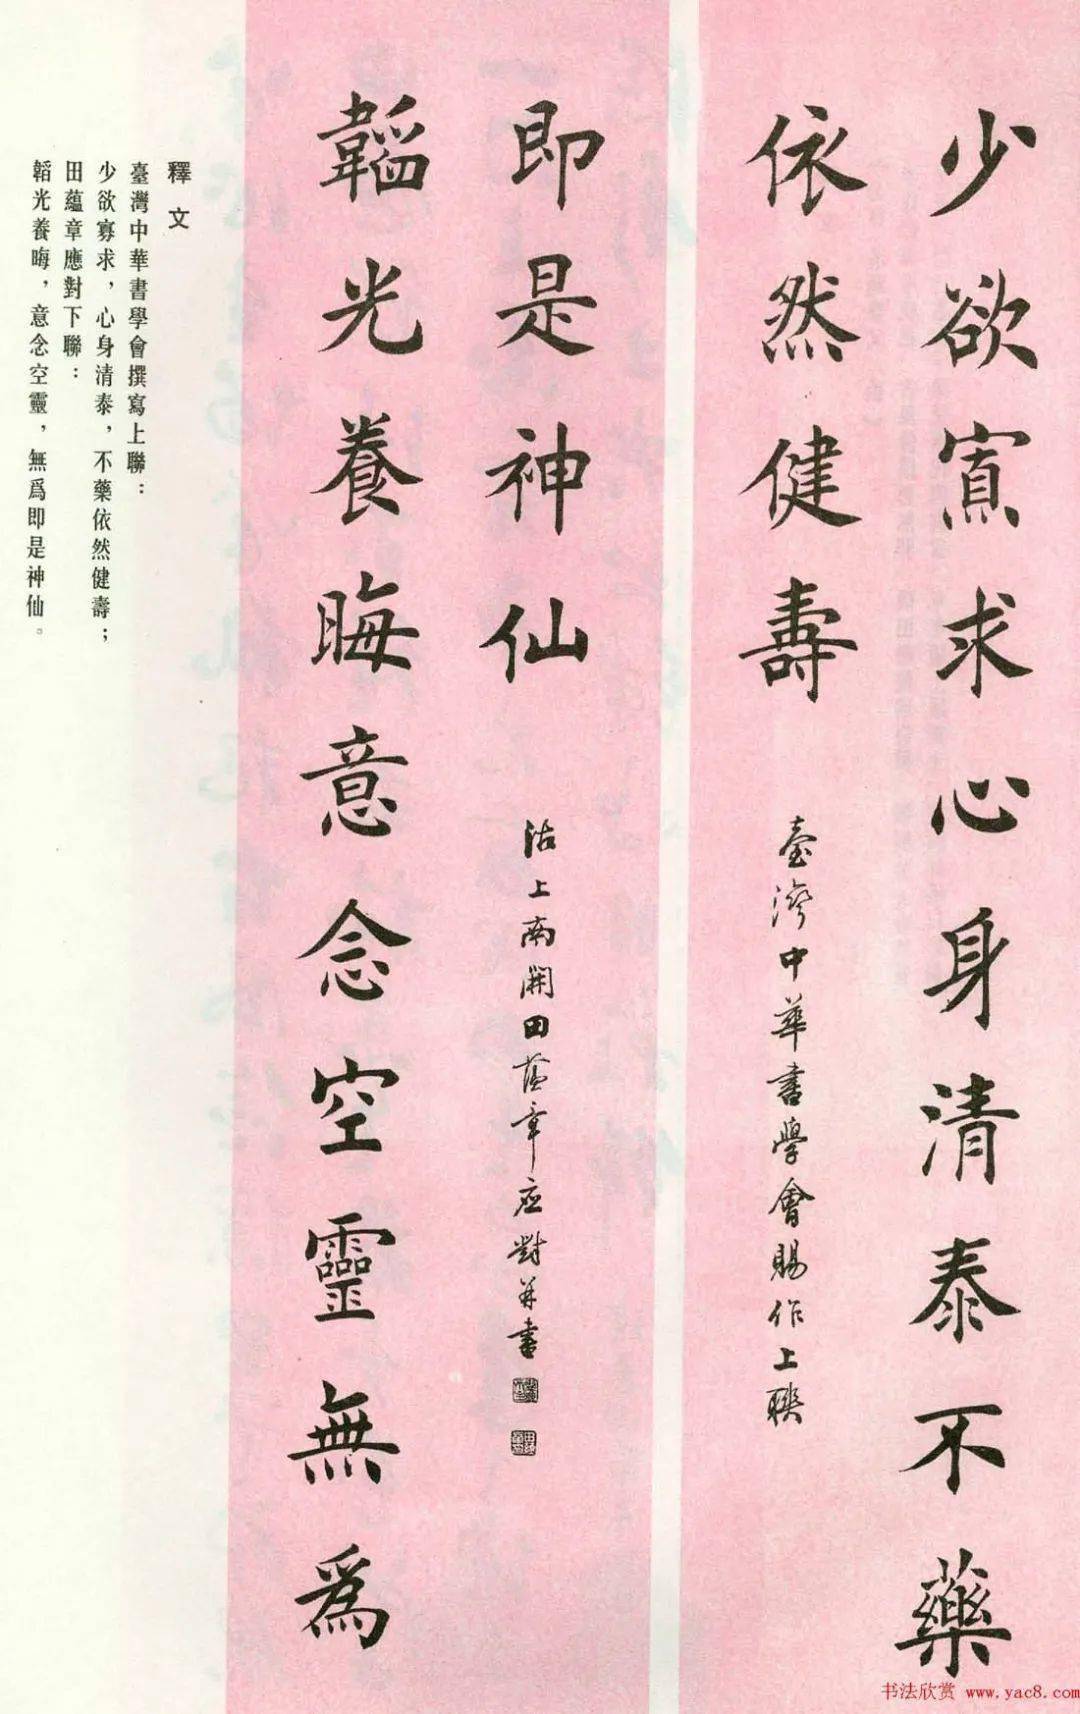 少欲寡求心身清泰不藥
依然健壽
臺灣中華書學會賜作上聯
韜光養晦意念空靈無爲
即是神仙
沽上南開田蘊章应對并書
釋文
臺灣中華書學會撰寫上聯：
少欲寡求，心身清泰，不藥依然健壽；
田蘊章應對下聯：
韜光養晦，意念空靈，無爲即是神仙。
书法欣赏 www.yac8.com